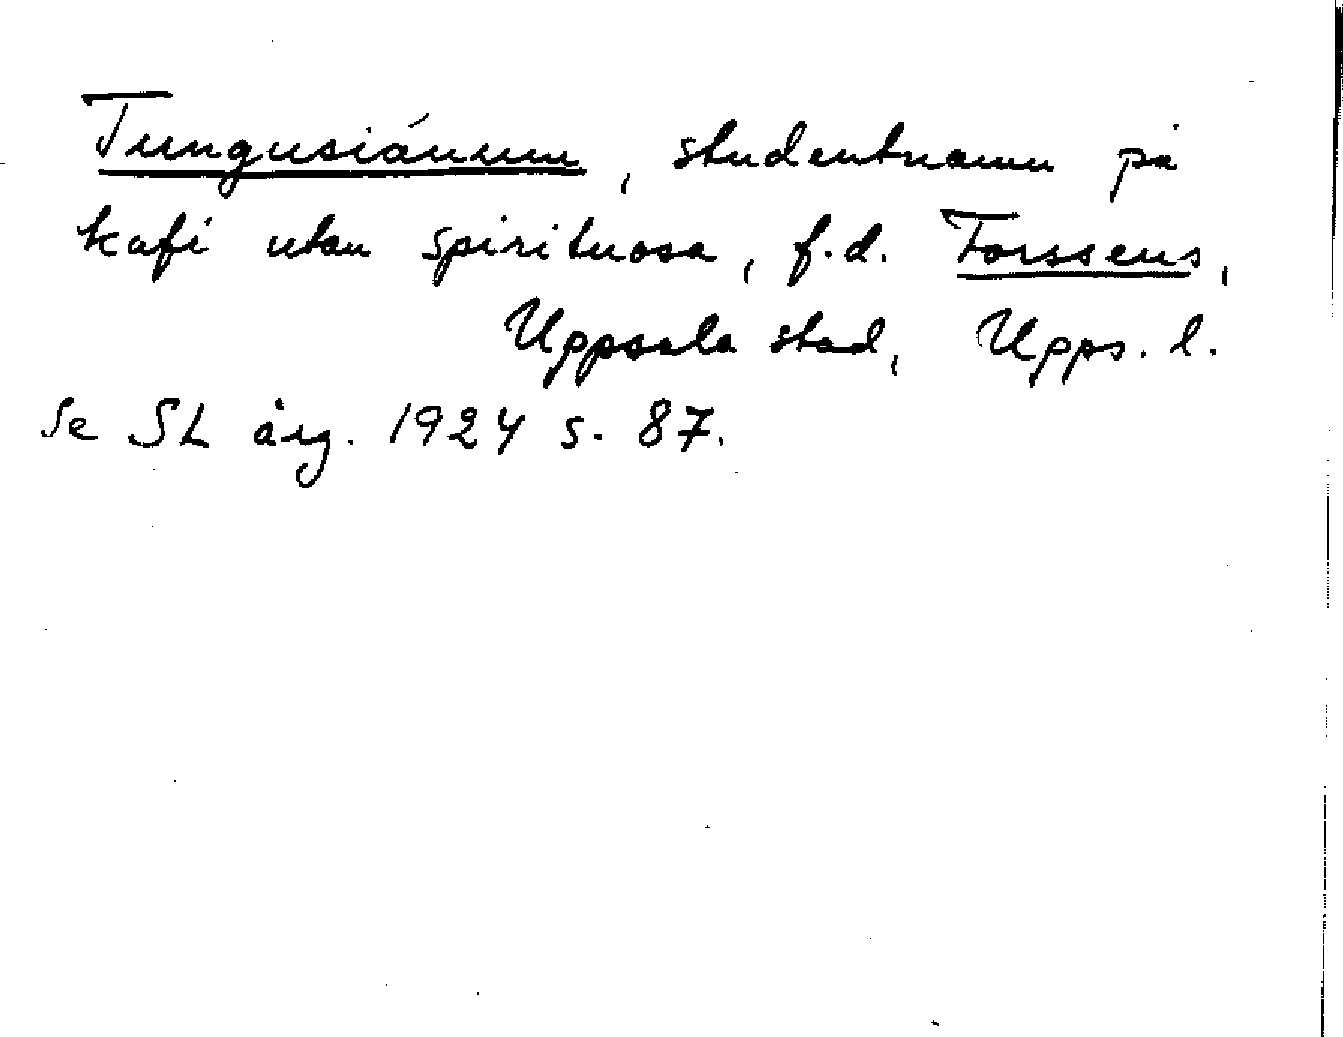 Tungusiánum, studentnamn på
kafé utan spirituosa, f.d. Forssens,
Uppsala stad, Upps. l.
Se SL årg. 1924 s. 87.